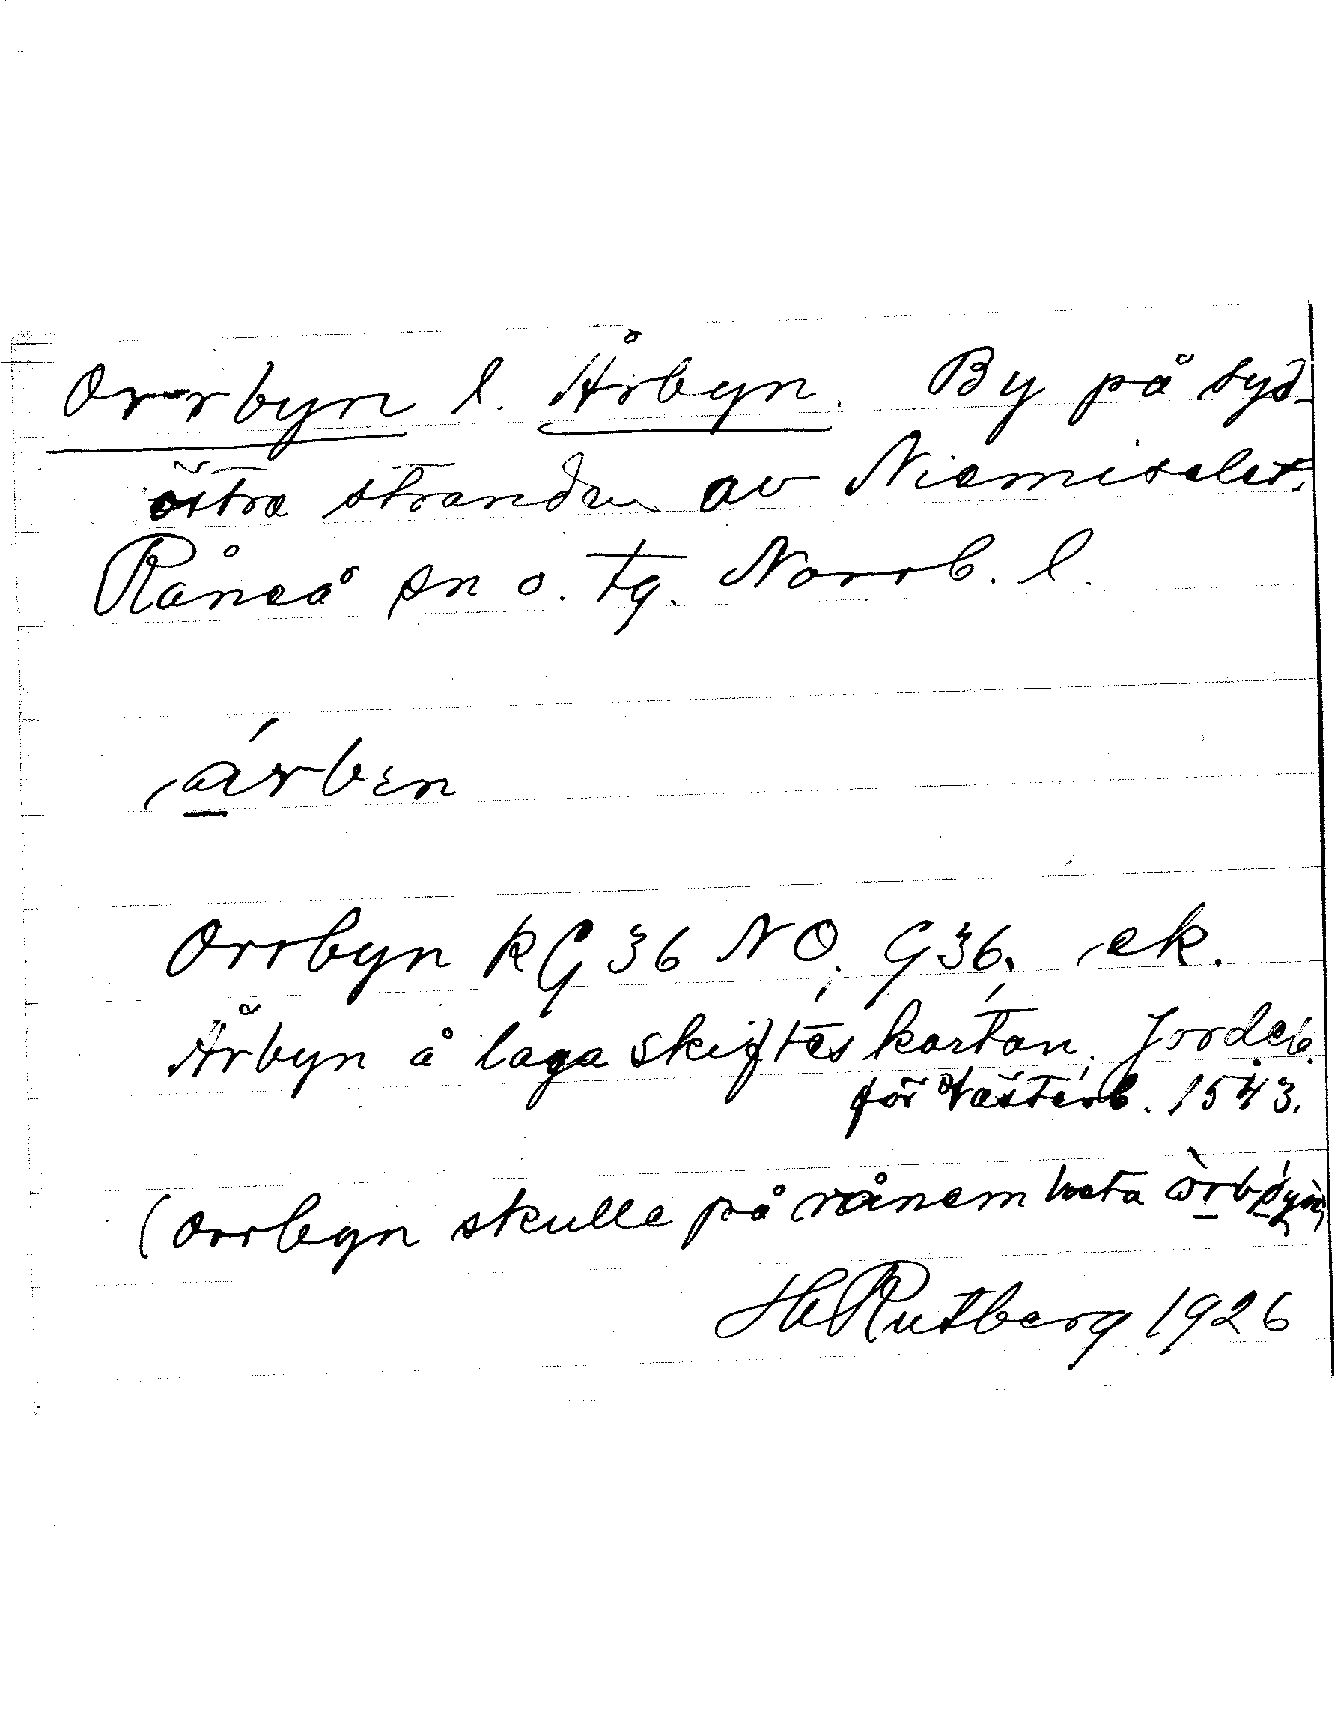 Orrbyn l. Årbyn. By på syd-
östra stranden av Niemiselet.
Råneå sn o. tg. Norrb. l.
árben
Orrbyn RG 36 NO, G 36, ek.
Årbyn å laga skifteskartan, Jordeb.
för Västerb. 1543.
(Orrbyn skulle på rånem heta
H Rutberg 1926